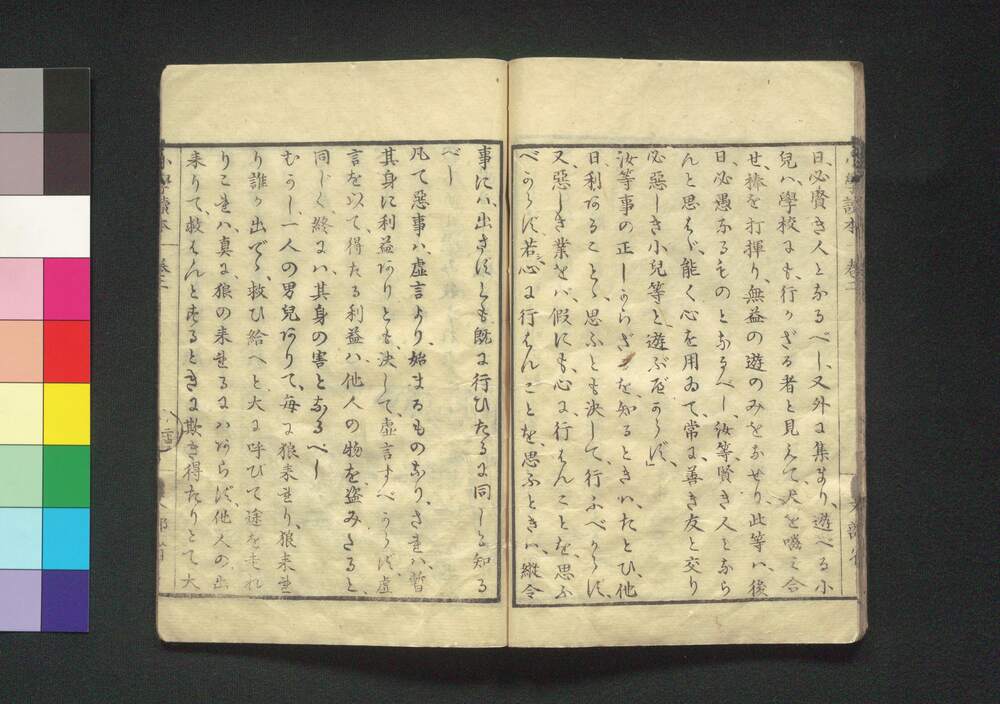 日、必賢き人となるべし、又外に集まり、遊べる小
兒ハ、學校にも、行かざる者と見えて、犬を噛ミ合
せ、棒を打揮り、無益の遊のみをなせり、此等ハ、後
日、必愚なるものとなるべし、汝等賢き人とならん
んと思はゞ、能く心を用ゐて、常に善き友と交り
必惡しき小兒等と、遊ぶべからず、
汝等事の正しからざるを知るときハ、たとひ、他
日利あることゝ、思ふとも決して、行ふべからず、
又惡しき業をバ、假にも、心に、行はんことを、思ふ
べからず、若心に行はんことを、思ふときハ、縱令
事にハ、出さずとも既に行ひたるに同しと知る
べし
凡て惡事ハ、虚言より、始まるものなり、されハ、暫
其身に利益ありとも、決して、虚言すべからず、虚
言を以て、得たる利益ハ、他人の物を、盗みたると
同じく終にハ、其身の害となるべし
むかし、一人の男兒ありて、毎に狼来れり、狼来れ
り誰か出でゝ、救ひ給へと、大に呼びて途を走れ
りこれハ、真に、狼の来れるにハあらず、他人の、出
来りて、救はんとするときに欺き得たりとて大
小學讀本 巻二
文部省